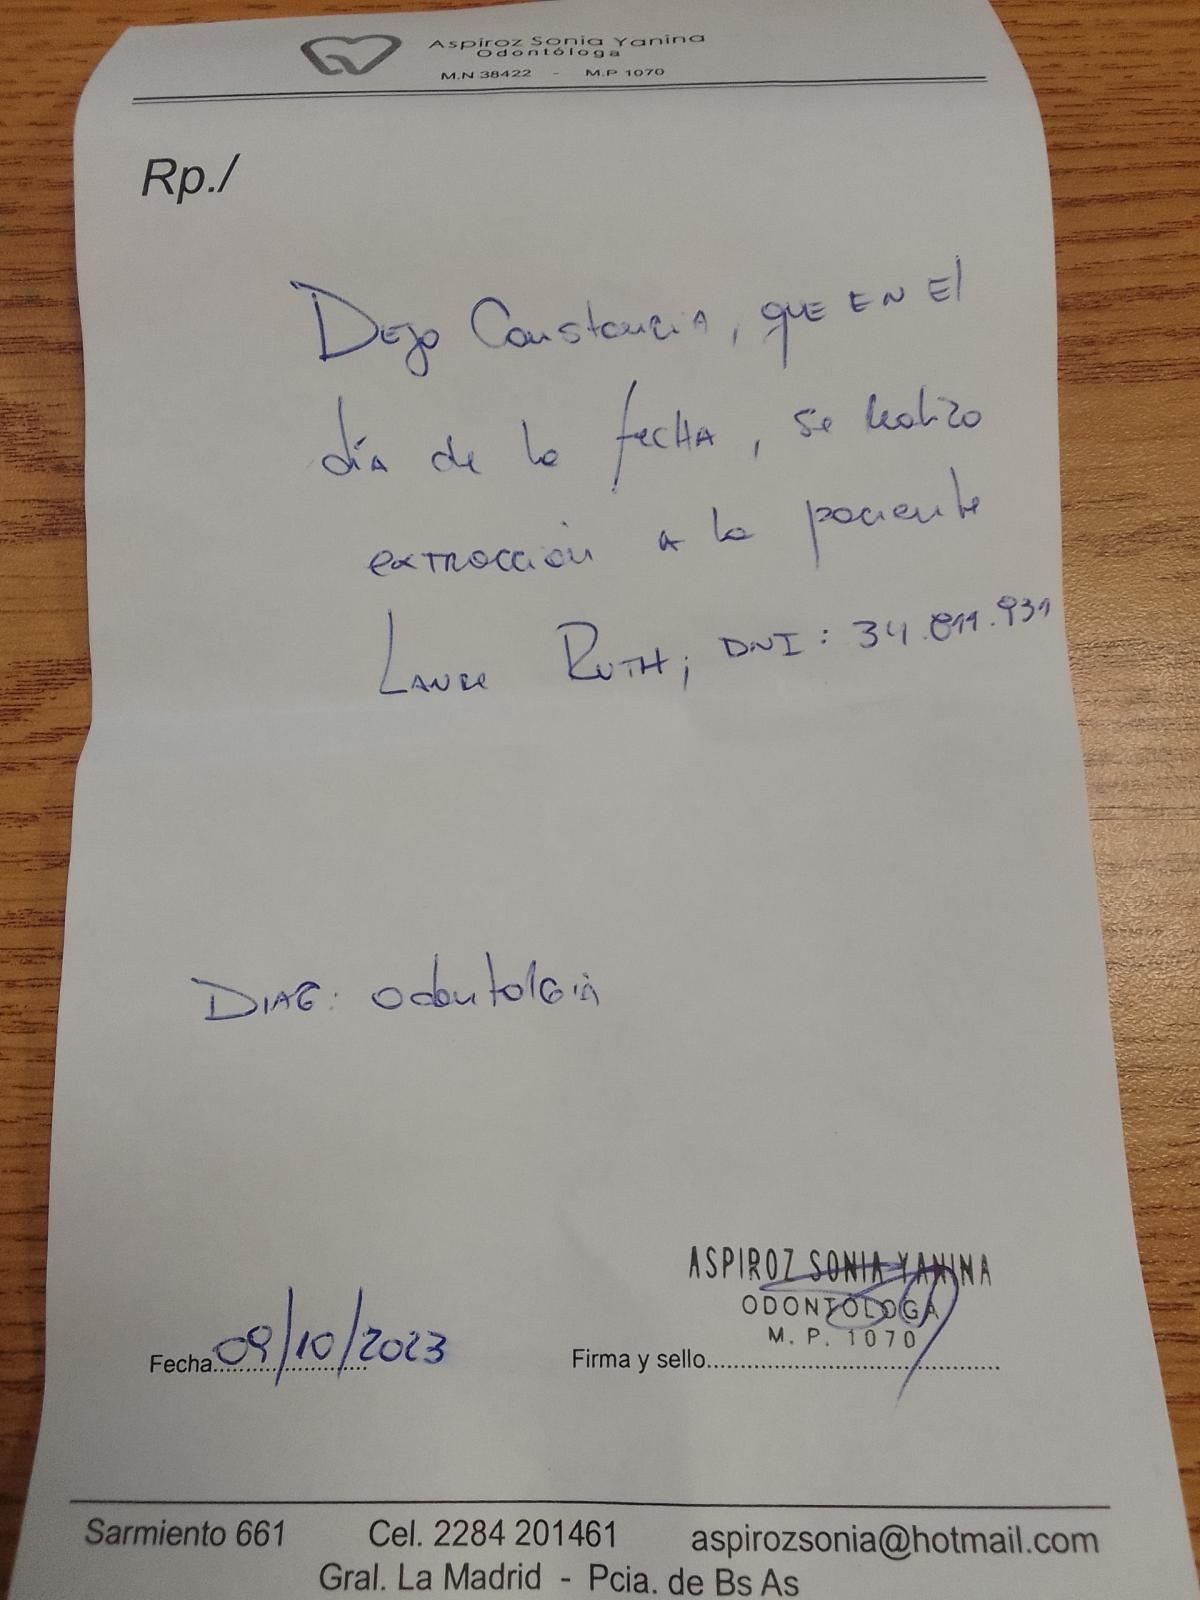 Aspiroz Sonia Yanina
Odontóloga
M.N 38422 - M.P 1070
Rp./
Dejo Constancia, que en el
día de la fecha, se realizo
extracción a la paciente
Ruth; DNI: 34.811.931
DIAG: odontolgia
Fecha 09/10/2023
ASPIROZ SONIA YANINA
ODONTÓLOGA
M. P. 1070
Firma y sello
Sarmiento 661 Cel. 2284 201461 aspirozsonia@hotmail.com
Gral. La Madrid - Pcia. de Bs As